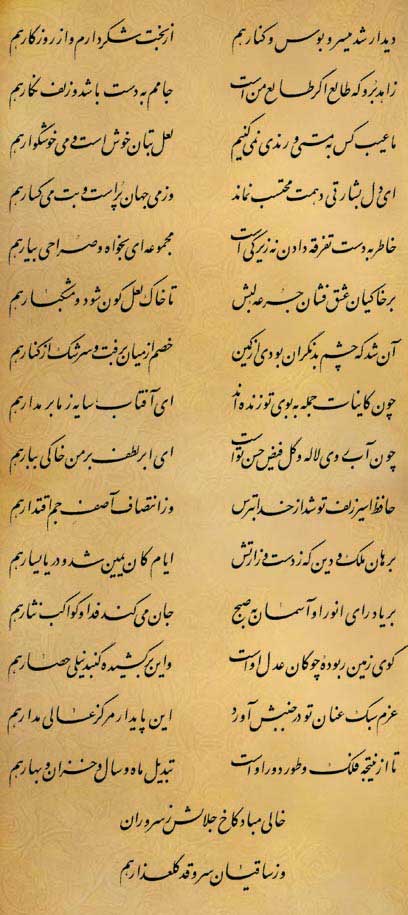 دیدار شد میسر و بوس و کنار هم از بخت شکر دارم و از روزگار هم
زاهد برو که طالع اگر طالع من است جامم به دست باشد و زلف نگار هم
ما عیب کس به مستی و رندی نمی‌کنیم لعل بتان خوش است و می خوشگوار هم
ای دل بشارتی دهمت محتسب نماند وز می جهان پر است و بت می گسار هم
خاطر به دست تفرقه دادن نه زیرکی است مجموعه‌ای بخواه و صراحی بیار هم
بر خاکیان عشق فشان جرعه لبش تا خاک لعل گون شود و مشکبار هم
آن شد که چشم بد نگران بودی از کمین خصم از میان برفت و سرشک از کنار هم
چون کاینات جمله به بوی تو زنده‌اند ای آفتاب سایه ز ما بر مدار هم
چون آب وی لاله و گل فیض حسن توست ای ابر لطف بر من خاکی ببار هم
حافظ اسیر زلف تو شد از خدا بترس وز انتصاف آصف جم اقتدار هم
برهان ملک و دین که ز دست وزارتش ایام کان یمین شد و دریا یسار هم
بر یاد رای انور او آسمان به صبح جان می‌کند فدا و کواکب نثار هم
گوی زمین ربوده چوگان عدل اوست وین برکشیده گنبد نیلی حصار هم
عزم سبک عنان تو در جنبش آورد این پایدار مرکز عالی مدار هم
تا از نتیجه فلک و طور دور اوست تبدیل ماه و سال و خزان و بهار هم
خالی مباد کاخ جلالش ز سروران
وز ساقیان سروقد گلعذار هم